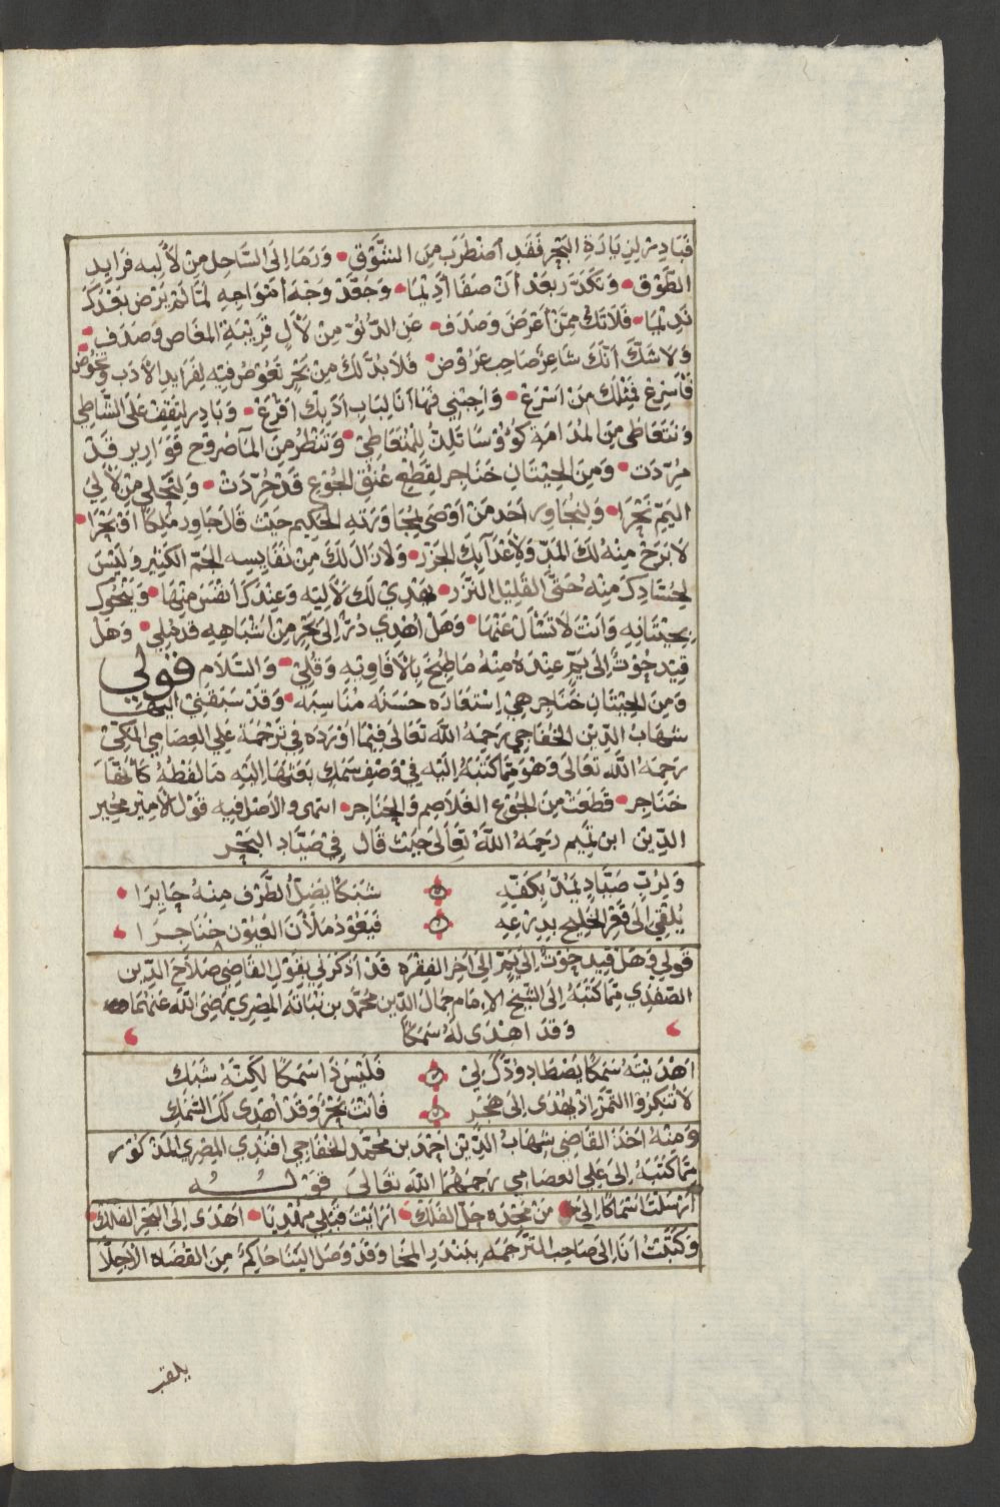 فَبَادِرْ لِزِيَادَةِ البَحْرِ فَقَدِ اَضْطَرَبَ مِنَ الشَّوْقِ • وَرَمَا اِلَى السَّاحِلِ مِنْ لَأْلِيه فَرَايِدِ
الطَّوْقِ • وَتَكَدَّرَ بَعْدَ اَنْ صَفَا اَدِيْمَا • وَحَقَدَ وَجْهَ اَمْوَاجِهِ لَمَّا لَمْ يَرْضَ بَعْدَكَ
نَدِيْمَا • فَلَا تَكُ مِمَّنْ اَعْرَضَ وَصَدَفَ • عَنِ الدُّنُوِّ مِنْ لَأْلٍ قَرِيْبَةِ المَغَاصِ وَصَدَفٍ •
وَلَا شَكَّ اَنَّكَ شَاعِرٌ صَاحِبُ عَرُوْضٍ • فَلَا بُدَّ لَكَ مِنْ بَحْرٍ تَغُوْصُ فِيْهِ لِفَرَايِدِ الاَدَبِ وَتَخُوْضُ
فَاَسْرِعْ فَمِثْلُكَ مَنْ اَسْرَعْ • وَاَجِبْنِي فَهَا اَنَا لِبَابِ اَدَبِكَ اَقْرَعْ • وَبَادِرْ لِنَقِفَ عَلَى الشَّاطِي
وَنَتَعَاطَى مِنَ المُدَامَةِ كُؤُوْسًا تَلَذُّ لِلْمُتَعَاطِيْ • وَنَنْظُرُ مِنَ المَآ صَرْحَ قَوَارِيرٍ قَدْ
مُرِّدَتْ • وَمِنَ الحِيْتَانِ خَنَاجِر لِقَطْعِ عُنُقِ الجُوْعِ قَدْ جُرِّدَتْ • وَلِيَتَحَلَّى مِنْ لَأْلِي
اليَمِّ نَحْرَا • وَلِيُجَاوِر اَحَد مَنْ اَوْصَى بِمُجَاوَرَتِهِ الحَكِيْم حَيْثُ قَالَ جَاوِر مَلِكًا اَوْ بَحْرَا •
لَا بَرِحَ مِنْهُ لَكَ المَدُّ وَلِأَعْدَآيِكَ الجَزْر • وَلَا زَالَ لَكَ مِنْ نَفَايِسِه الجَمُّ الكَثِيْر وَلَيْسَ
لِحُسَّادِكَ مِنْهُ حَتَّى القَلِيْل النَّزْر • يُهْدِيْ لَكَ لَأْلِيَه وَعِنْدَكَ اَنْفَسُ مِنْهَا • وَيَنْحُوْكَ
بِحِيْتَانِهِ وَاَنْتَ لَا تَسْأَلُ عَنْهَا • وَهَلْ اُهْدِي دُرٌّ اِلَى بَحْرٍ مِنْ اَشْبَاهِهِ قَدْ مُلِي • وَهَلْ
قِيْدَ حُوْتٌ اِلَى يَمٍّ عِنْدَهُ مِنْهُ مَا طُبِخَ بِالاَفَاوِيْهِ وَقُلِيْ • وَالسَّلَام قَوْلِي
وَمِنَ الحِيْتَانِ خَنَاجِر هِيَ اِسْتِعَارَه حَسَنَه مُنَاسِبَه • وَقَدْ سَبَقَنِي اليْهَا
شِهَابُ الدِّيْن الخَفَاجِي رَحِمَهُ اللّٰه تَعَالَى فِيْمَا اَوْرَدَه فِي تَرْجُمَةِ عَلِي العِصَامِي المَكِّيّ
رَحِمَهُ اللّٰه تَعَالَى وَهُوَ مِمَّا كَتَبَهُ اِلَيْهِ فِيْ وَصْفِ سَمَكٍ بَعَثَهَا اِلَيْهِ مَا لَفْظُهُ كَاَنَّهَا
خَنَاجِر • قَطَعَتْ مِنَ الجُوْعِ الغَلَاصِم وَالحَنَاجِر • انتهى والاَصْل فِيه قَوْلُ الاَمِيْر مُجِير
الدِّيْنِ ابن تَمِيْم رَحِمَهُ اللّٰه تَعَالَى حَيْثُ قَالَ فِيْ صَيَّادِ البَحْر
وَلِرُبَّ صَيَّادٍ يَمُدُّ بِكَفِّهِ شَبَكًا يَضِلُّ الطَّرْف مِنْهُ حَايِرَا •
يُلْقِي اِلَى قَعْرِ الخَلِيْجِ بِدِرْعِهِ فَيَعُوْدُ مَلْآنَ العُيُوْنِ خَنَاجِرَا •
قَوْلِي وَهَلْ قِيدَ حُوْتٌ اِلَى يَمٍّ اِلَى اَخِرِ الفِقْرَه قَدْ اَذْكَرَنِي بِقَوْلِ القَاضِي صَلَاح الدِّيْن
الصَّفَدِي مِمَّا كَتَبَهُ اِلَى الشَّيْخ الاِمَام جَمَال الدِّيْن مُحَمَّد بن نُبَاتَهُ المِصْرِي رَضِيَ اللّٰه عَنْهُمَا
وَقَدْ اهْدَى لَهُ سَمَكًا
اَهْدَيْتَهُ سَمَكًا يَصْطَادُ وُدَّكَ لِيْ فَلَيْسَ ذَا سَمَكًا لَكِنَّهُ شَبَكُ
لَا تُنْكِرُوا التَّمْرَ اِذْ يُهْدَى اِلَى هَجَرٍ فَاَنْتَ بَحْرٌ وَقَدْ اَهْدَى لَكَ السَّمَكُ
وَمِنْهُ اَخَذَ القَاضِي شِهَابُ الدِّيْن اَحْمَد بن مُحَمَّد الخَفَاجِي افَنْدِي المِصْرِي المَذْكُوْر
مِمَّا كَتَبَهُ اِلَى عَلِي العِصَامِي رَحِمَهُمَا اللّٰه تَعَالَى قَوْلُهُ
اَرْسَلْتَ اَسْمَاكًا اِلَى • مَنْ مَجْدُه حَلَّ الفَلَكْ • اَرَاَيْتَ قَبْلِي مُهْدِيًا • اَهْدَى اِلَى البَحْرِ الفَلَكْ •
وَكَتَبْتُ اَنَا اِلَى صَاحِبِ التَّرْجَمَه بِبَنْدَرِ المَخَا وَقَدْ وَصَلَ اليْنَا حَاكِمٌ مِنَ القُضَاه الاَجِلَّا
يلقب